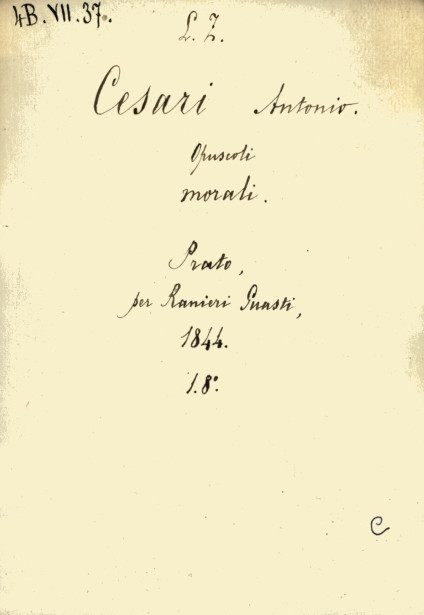 4B.VII.37.
L. Z.
Cesari Antonio.
Opuscoli
morali.
Prato,
per Ranieri Guasti,
1844.
1.8°.
C